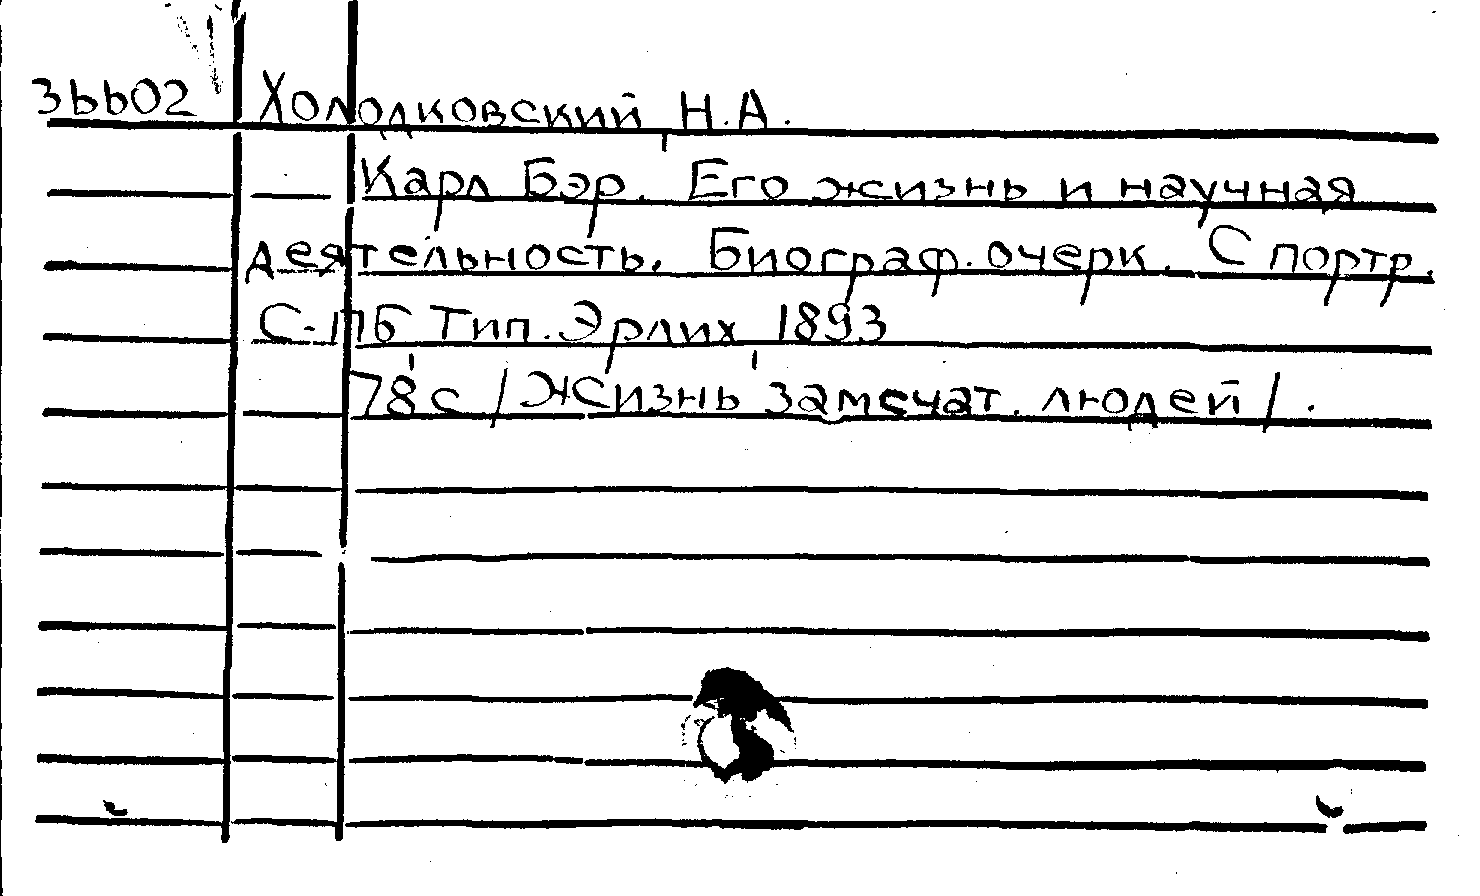 36602 Холодковский Н.А.
Карл Бэр. Его жизнь и научная
деятельность. Биограф. очерк. С портр.
С-ПБ Тип. Эрлих 1893
78 с /Жизнь замечат. людей/.